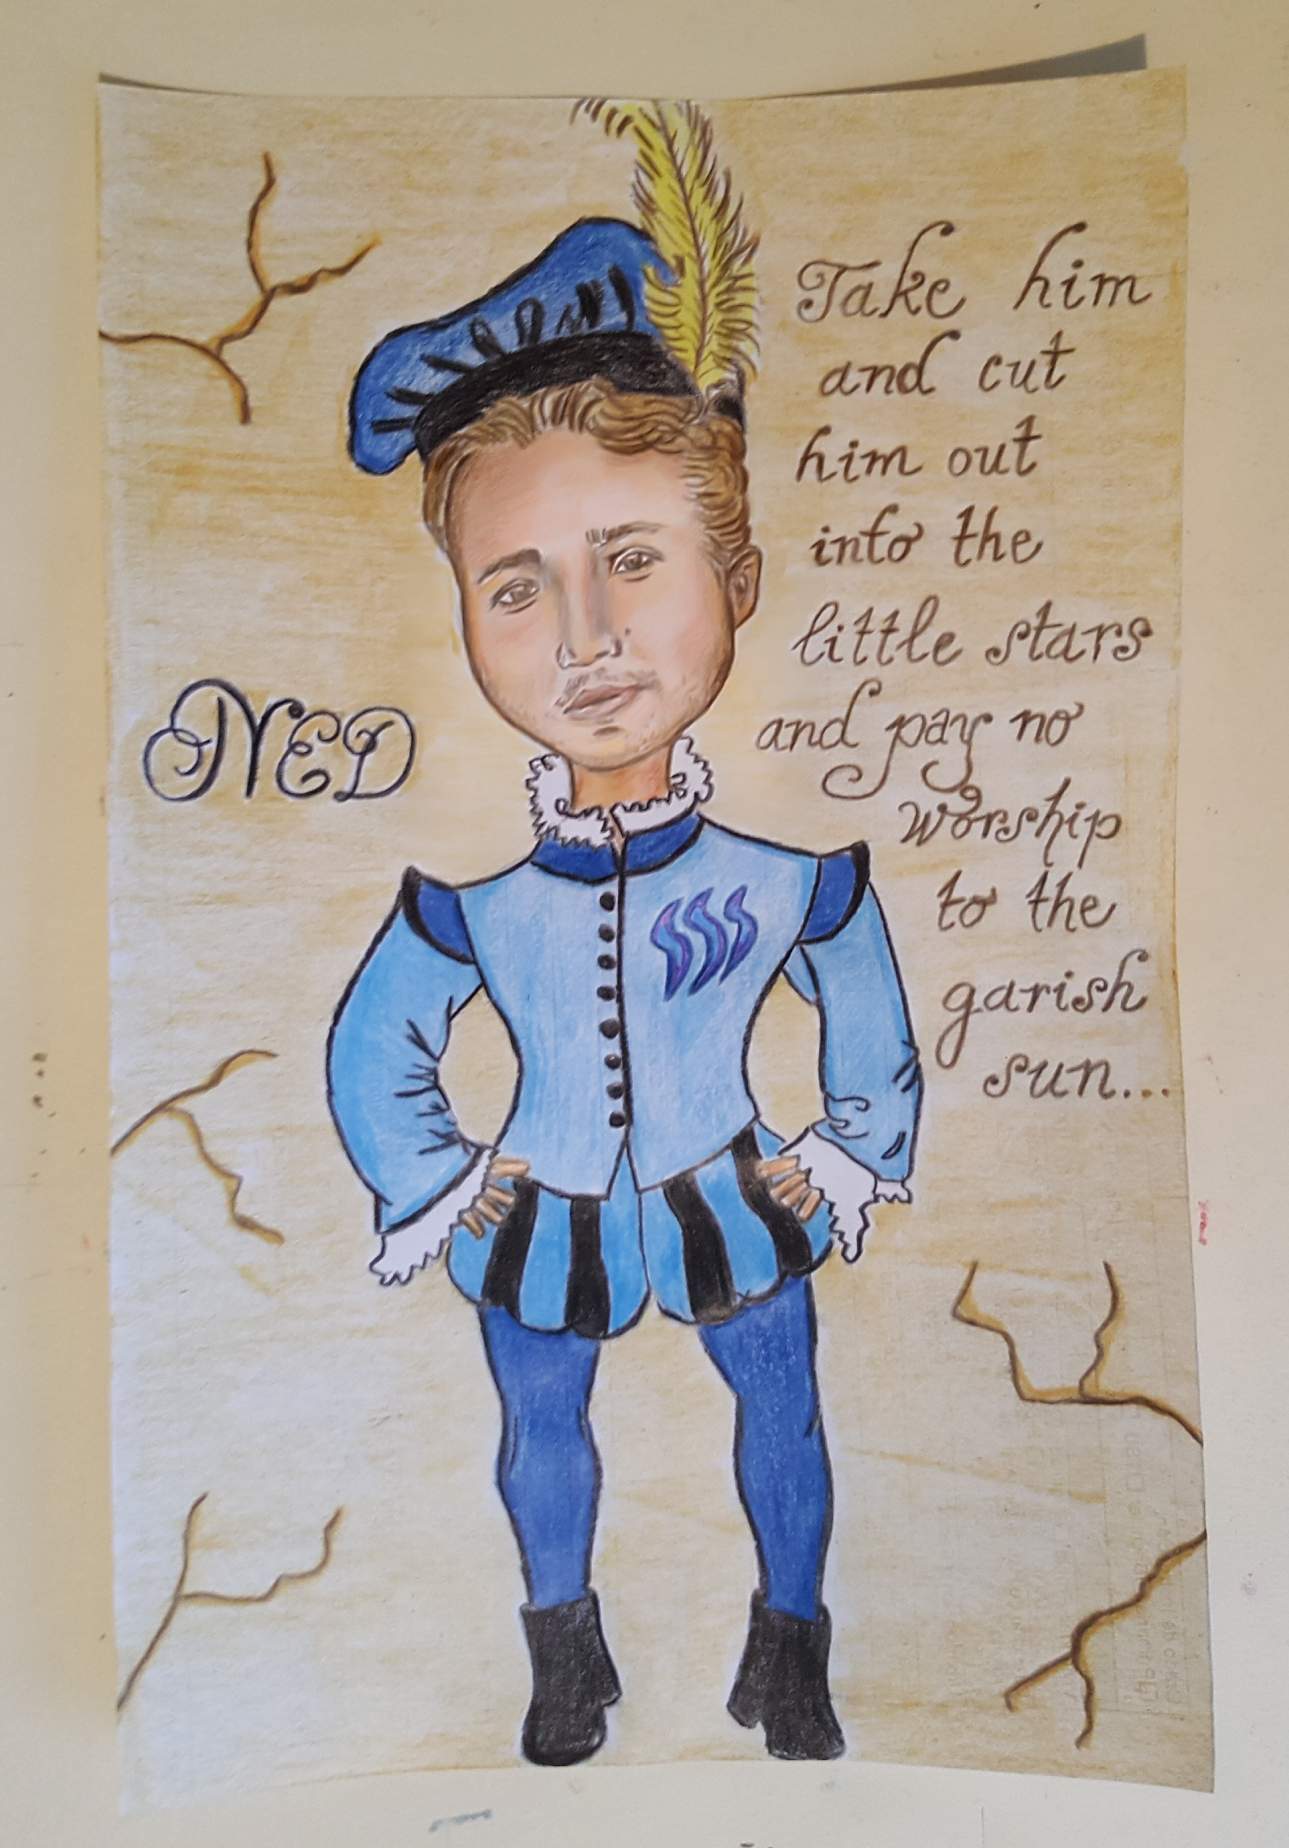 Take him
and cut
him out
into the
little stars
NED
and pay no
worship
to the
garish
sun...